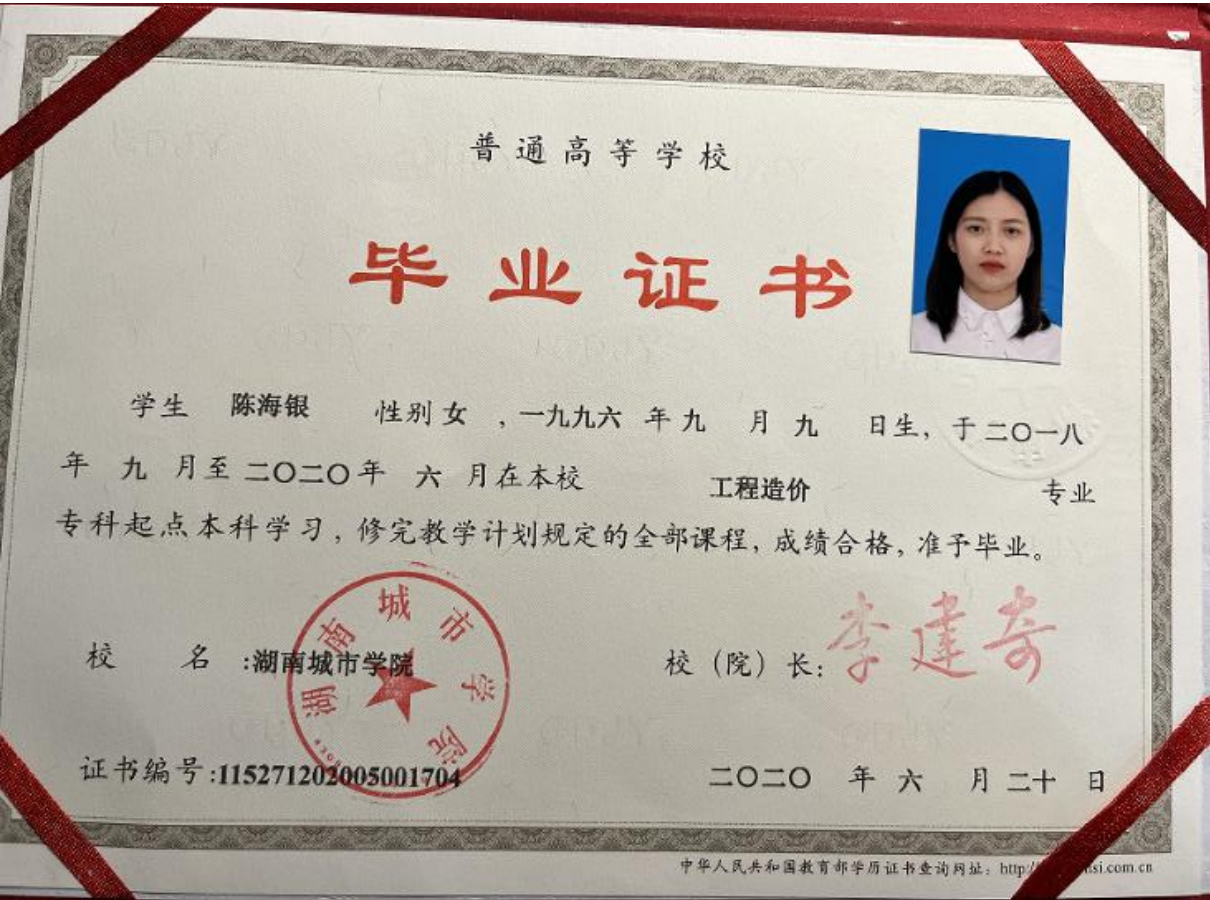 普通高等学校
毕业证书
学生 陈海银 性别 女 ，一九九六 年 九 月 九 日生，于 二〇一八
年 九 月至 二〇二〇 年 六 月在本校 工程造价 专业
专科起点本科学习，修完教学计划规定的全部课程，成绩合格，准予毕业。
校 名 :湖南城市学院
湖南城市学院
校（院）长：李建奇
证书编号:115271202005001704
二〇二〇 年 六 月 二十 日
中华人民共和国教育部学历证书查询网址：http:/ si.com.cn